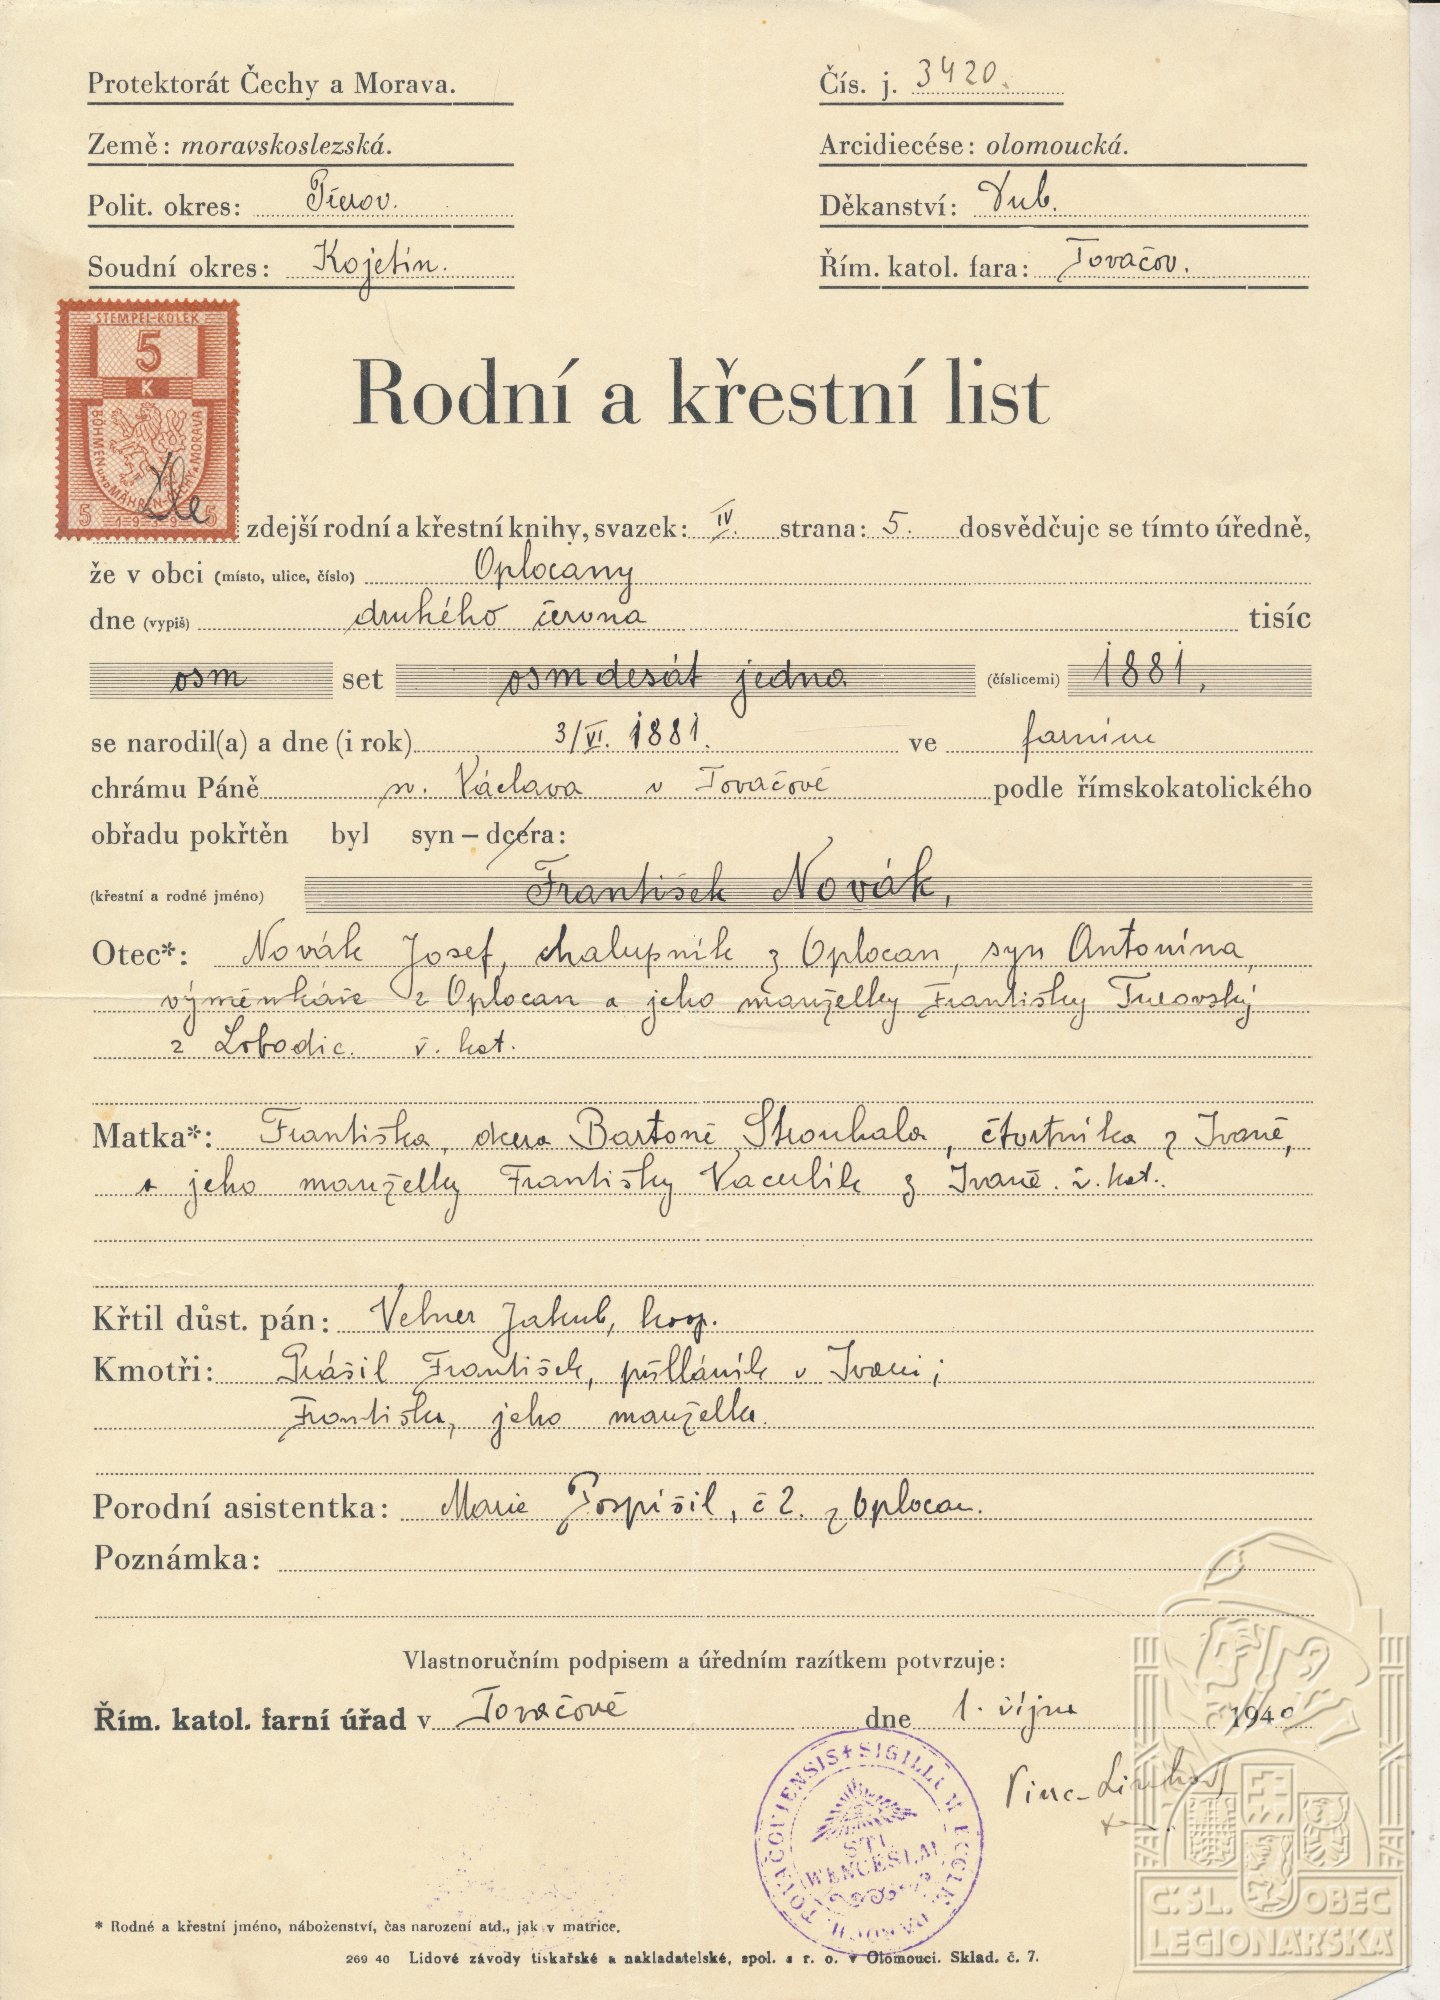 Protektorát Čechy a Morava.
Čís. j. 3420.
Země: moravskoslezská.
Arcidiecése: olomoucká.
Polit. okres: Přerov.
Děkanství: Dub.
Soudní okres: Kojetín.
Řím. katol. fara: Tovačov.
STEMPEL-KOLEK
5
K
BÖHMEN UND MÄHREN-ČECHY A MORAVA
5 1939 5
Rodní a křestní list
Dle zdejší rodní a křestní knihy, svazek: IV. strana: 5. dosvědčuje se tímto úředně,
že v obci (místo, ulice, číslo) Oplocany
dne (vypiš) druhého června tisíc
osm set osmdesát jedna (číslicemi) 1881,
se narodil(a) a dne (i rok) 3/VI. 1881. ve farním
chrámu Páně sv. Václava v Tovačově podle římskokatolického
obřadu pokřtěn byl syn – dcera:
(křestní a rodné jméno) František Novák,
Otec*: Novák Josef, chalupník z Oplocan, syn Antonína,
výměnkáře z Oplocan a jeho manželky Františky Turovský
z Lobodic. ř. kat.
Matka*: Františka, dcera Bartoně Strouhala, čtvrtníka z Ivaně,
a jeho manželky Františky Vaculík z Ivaně. ř. kat.
Křtil důst. pán: Velner Jakub, koop.
Kmotři: Prášil František, půllaník v Ivani;
Františka, jeho manželka.
Porodní asistentka: Marie Pospíšil, č 2. z Oplocan.
Poznámka:
Vlastnoručním podpisem a úředním razítkem potvrzuje:
Řím. katol. farní úřad v Tovačově dne 1. října 1940
Vinc.
SIGILLUM ECCLE. PAROCH. TOVAČOVIENSIS
STI. WENCESLAI
* Rodné a křestní jméno, náboženství, čas narození atd., jak v matrice.
269 40 Lidové závody tiskařské a nakladatelské, spol. s r. o. v Olomouci. Sklad. č. 7.
Č.SL. OBEC
LEGIONÁŘSKÁ